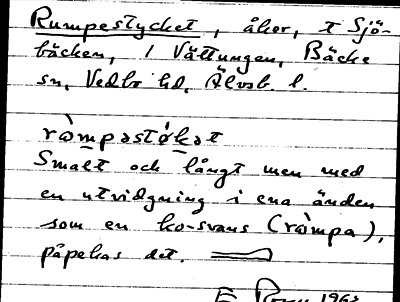 Rumpestycket, åker, t Sjö-
bäcken, 1 Vättungen, Bäcke
sn, Vedbo hd, Älvsb. l.
ràmpəstək̀ət
Smalt och långt men med
en utvidgning i ena änden
som en ko-svans (ràmpa),
påpekas det.
E 1963